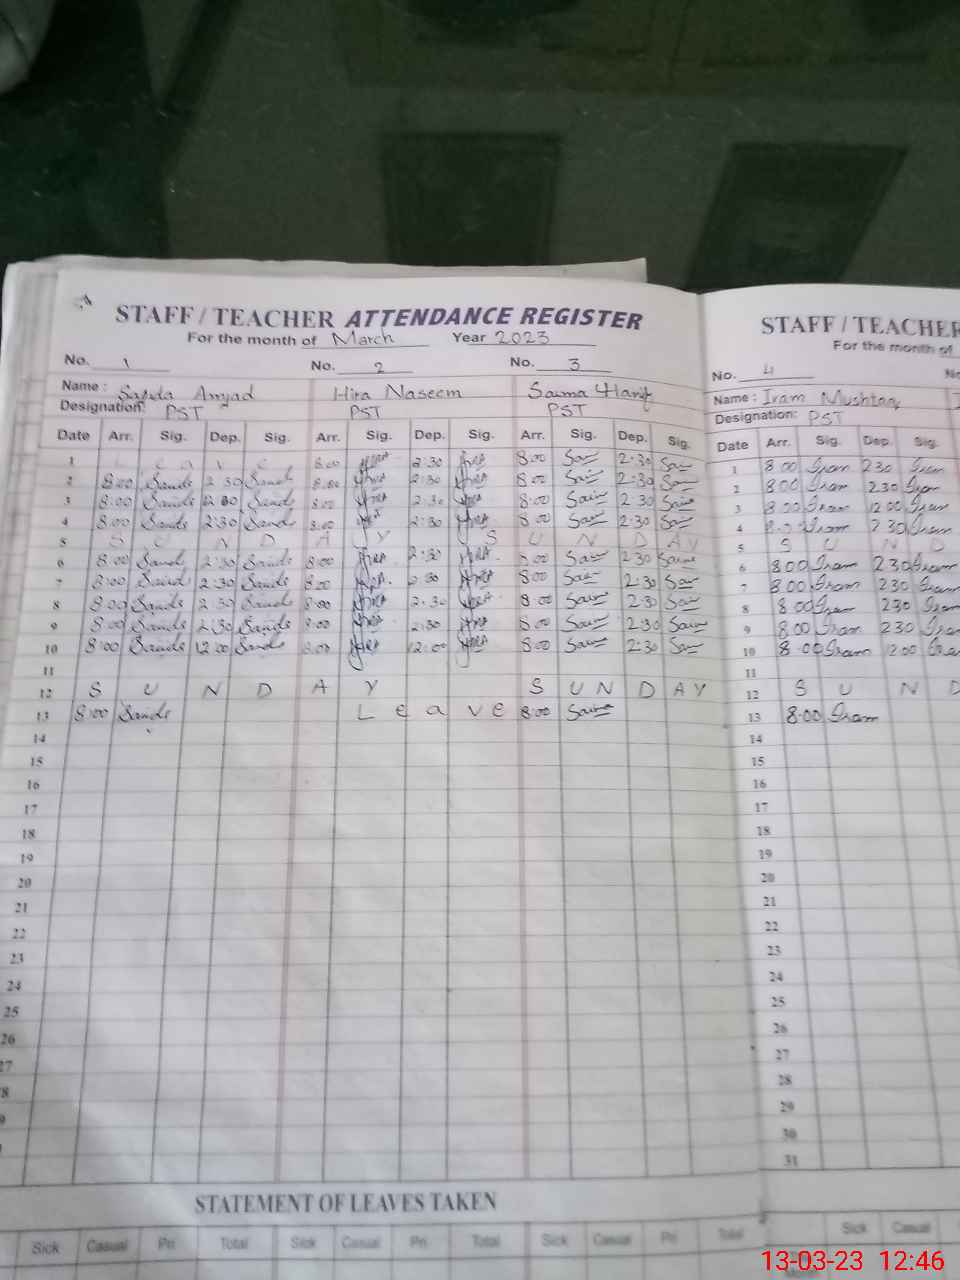 STAFF / TEACHER ATTENDANCE REGISTER
For the month of March Year 2023
No. 1 No. 2 No. 3
Name : Amjad Hira Naseem Saima Hanif
Designation: PST PST PST
Date Arr. Sig. Dep. Sig. Arr. Sig. Dep. Sig. Arr. Sig. Dep. Sig.
1 8:00 2:30 8:00 2:30
2 8:00 2:30 8:00 2:30 8:00 2:30
3 8:00 12:00 8:00 2:30 8:00 2:30
4 8:00 2:30 8:00 2:30 8:00 2:30
5 S U N D A Y S U N D A Y
6 8:00 2:30 8:00 2:30 8:00 2:30
7 8:00 2:30 8:00 2:30 8:00 2:30
8 8:00 2:30 8:00 2:30 8:00 2:30
9 8:00 2:30 8:00 2:30 8:00 2:30
10 8:00 12:00 8:00 12:00 8:00 2:30
11
12 S U N D A Y S U N D A Y
13 8:00 L e a v e 8:00
14
15
16
17
18
19
20
21
22
23
24
25
26
27
8
9
STATEMENT OF LEAVES TAKEN
Sick Casual Pri Total Sick Casual Pri Total Sick Casual Pri Total
STAFF / TEACHER
For the month of
No. 4 No
Name : Iram Mushtaq
Designation: PST
Date Arr. Sig. Dep. Sig.
1 8:00 Iram 2:30 Iram
2 8:00 Iram 2:30 Iram
3 8:00 Iram 12:00 Iram
4 8:00 Iram 2:30 Iram
5 S U N D
6 8:00 Iram 2:30 Iram
7 8:00 Iram 2:30 Iram
8 8:00 Iram 2:30 Iram
9 8:00 Iram 2:30 Iram
10 8:00 Iram 12:00
11
12 S U N D
13 8:00 Iram
14
15
16
17
18
19
20
21
22
23
24
25
26
27
28
29
30
31
Sick Casual
13-03-23 12:46